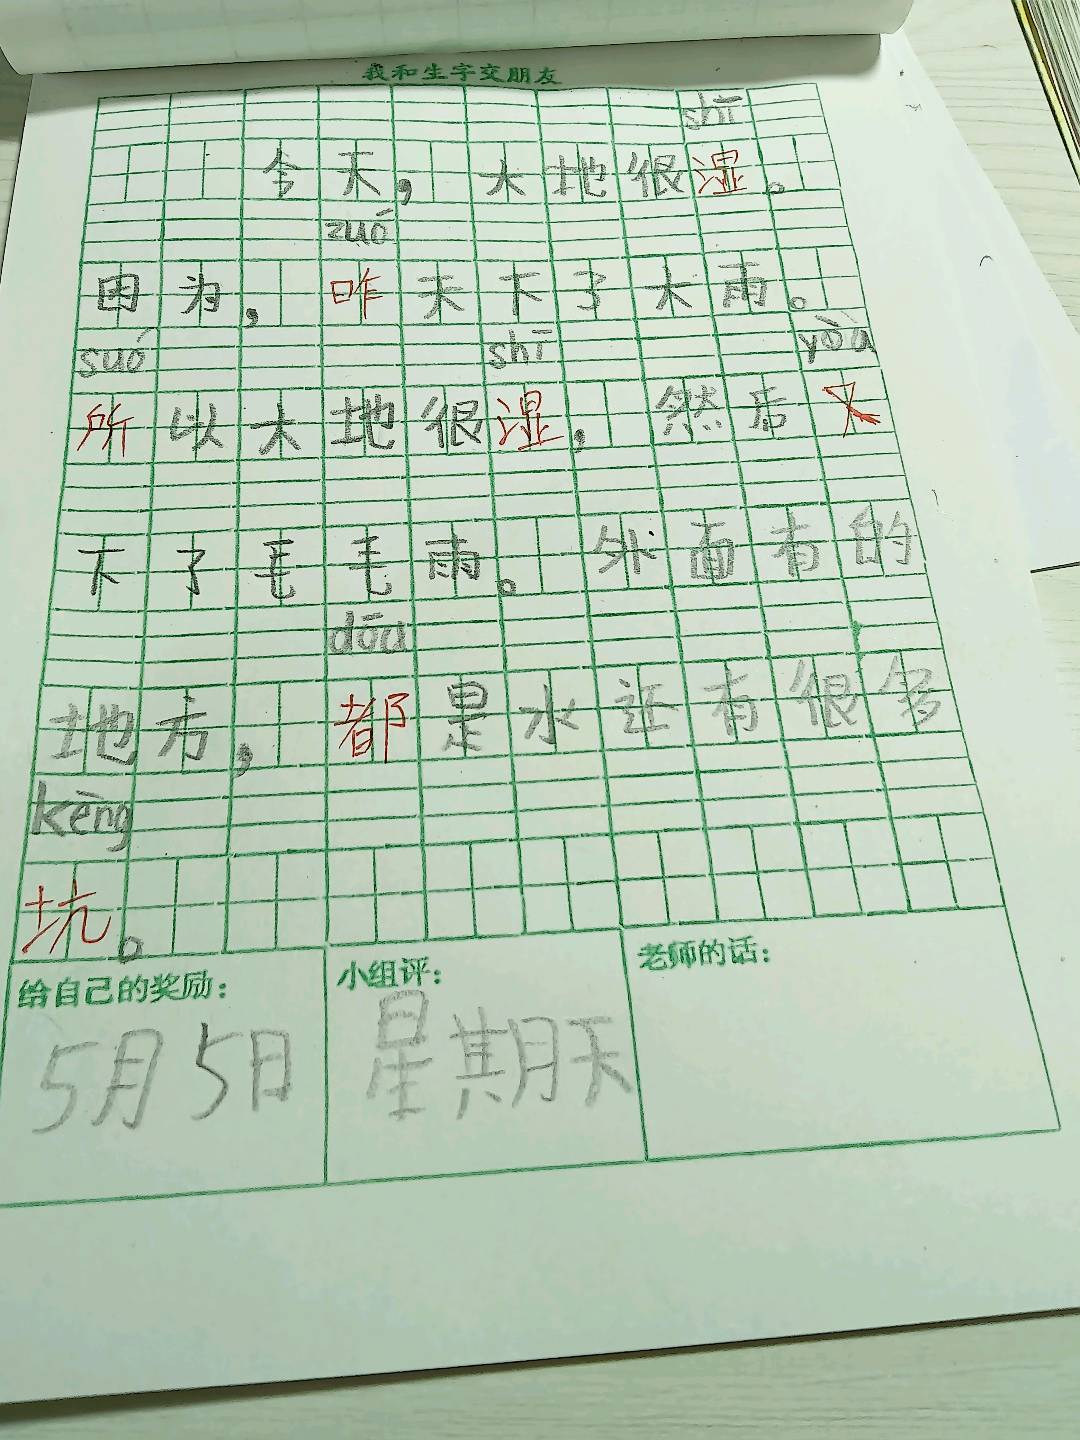 我和生字交朋友
shī
今天，大地很湿。
zuó
因为，昨天下了大雨。
suó shī
所以大地很湿，然后又
下了毛毛雨。外面有的
dōu
地方，都是水还有很多
kēng
坑。
给自己的奖励： 小组评： 老师的话：
5月5日 星期天